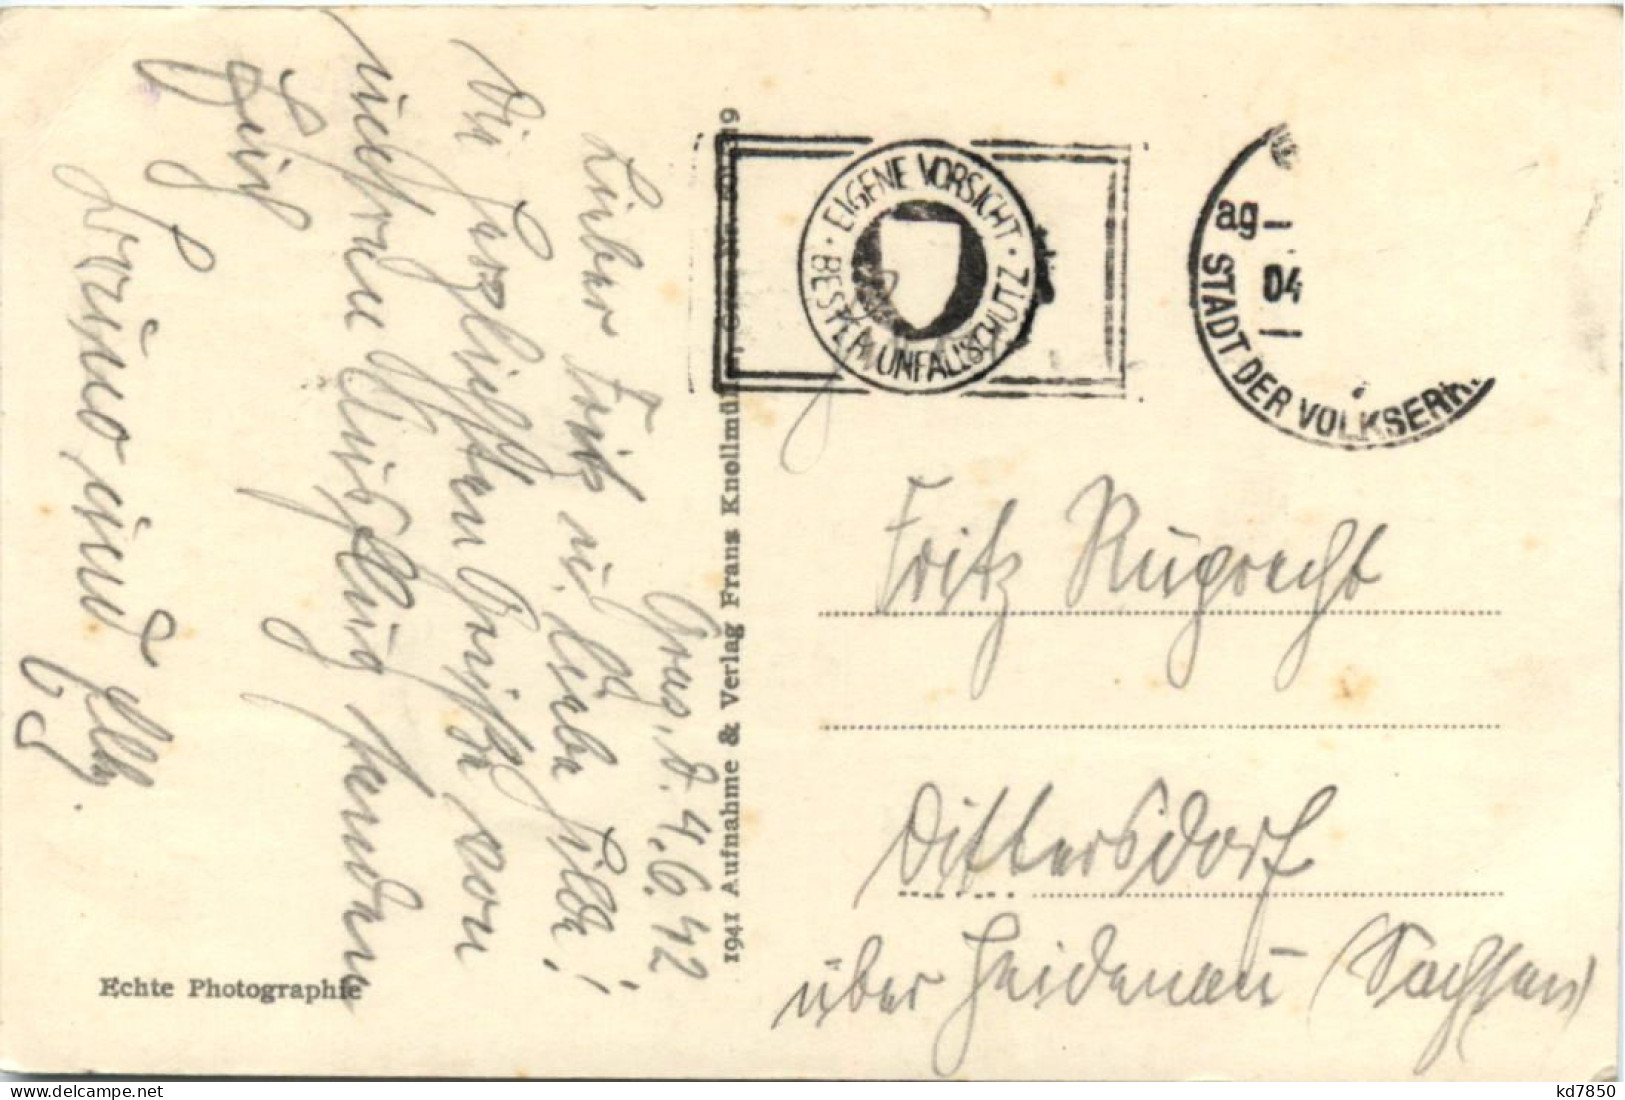 Graz, d. 4.6.42
Lieber Fritz u. liebe Hilde!
Die herzlichsten Grüße von
unserem Ausflug senden
Euch
Bruno und Elly.
Echte Photographie
1941 Aufnahme & Verlag Franz Knollmüller, Graz
EIGENE VORSICHT · BESTER UNFALLSCHUTZ ·
ag
04
STADT DER VOLKSERH
Fritz Ruprecht
Dittersdorf
über Heidenau (Sachsen)
kd7850